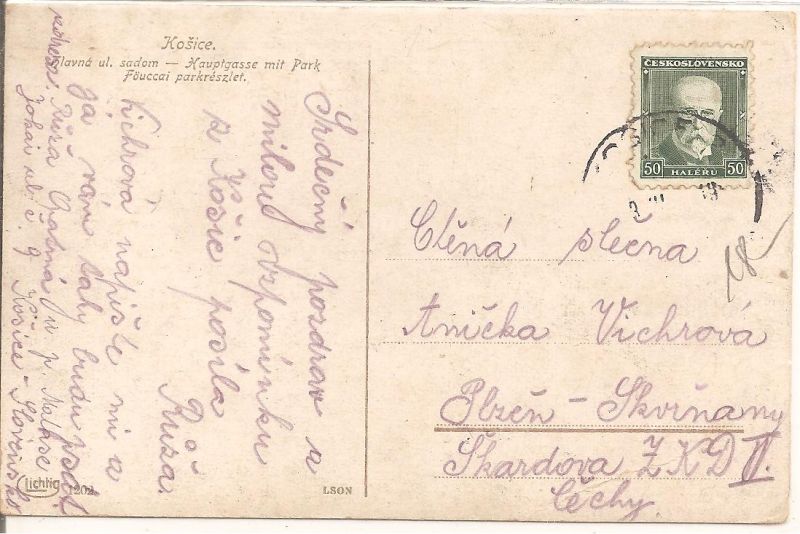 Košice.
Hlavná ul. sadom — Hauptgasse mit Park
Föuccai parkrészlet.
ČESKOSLOVENSKO
50 HALÉŘŮ 50
Srdečný pozdrav a
milou vzpomínku
z Košic posílá
Růža.
Vichrová napište mi a
já vám taky budu psát
adresa. Růža
u p.
Jokai ul. č. 9 Košice - Slovensko
Ctěná slečna
Anička Vichrová
Plzeň - Skvrňany
Škardova Z.K.D II.
Čechy.
18
Lichtig
1202
LSON